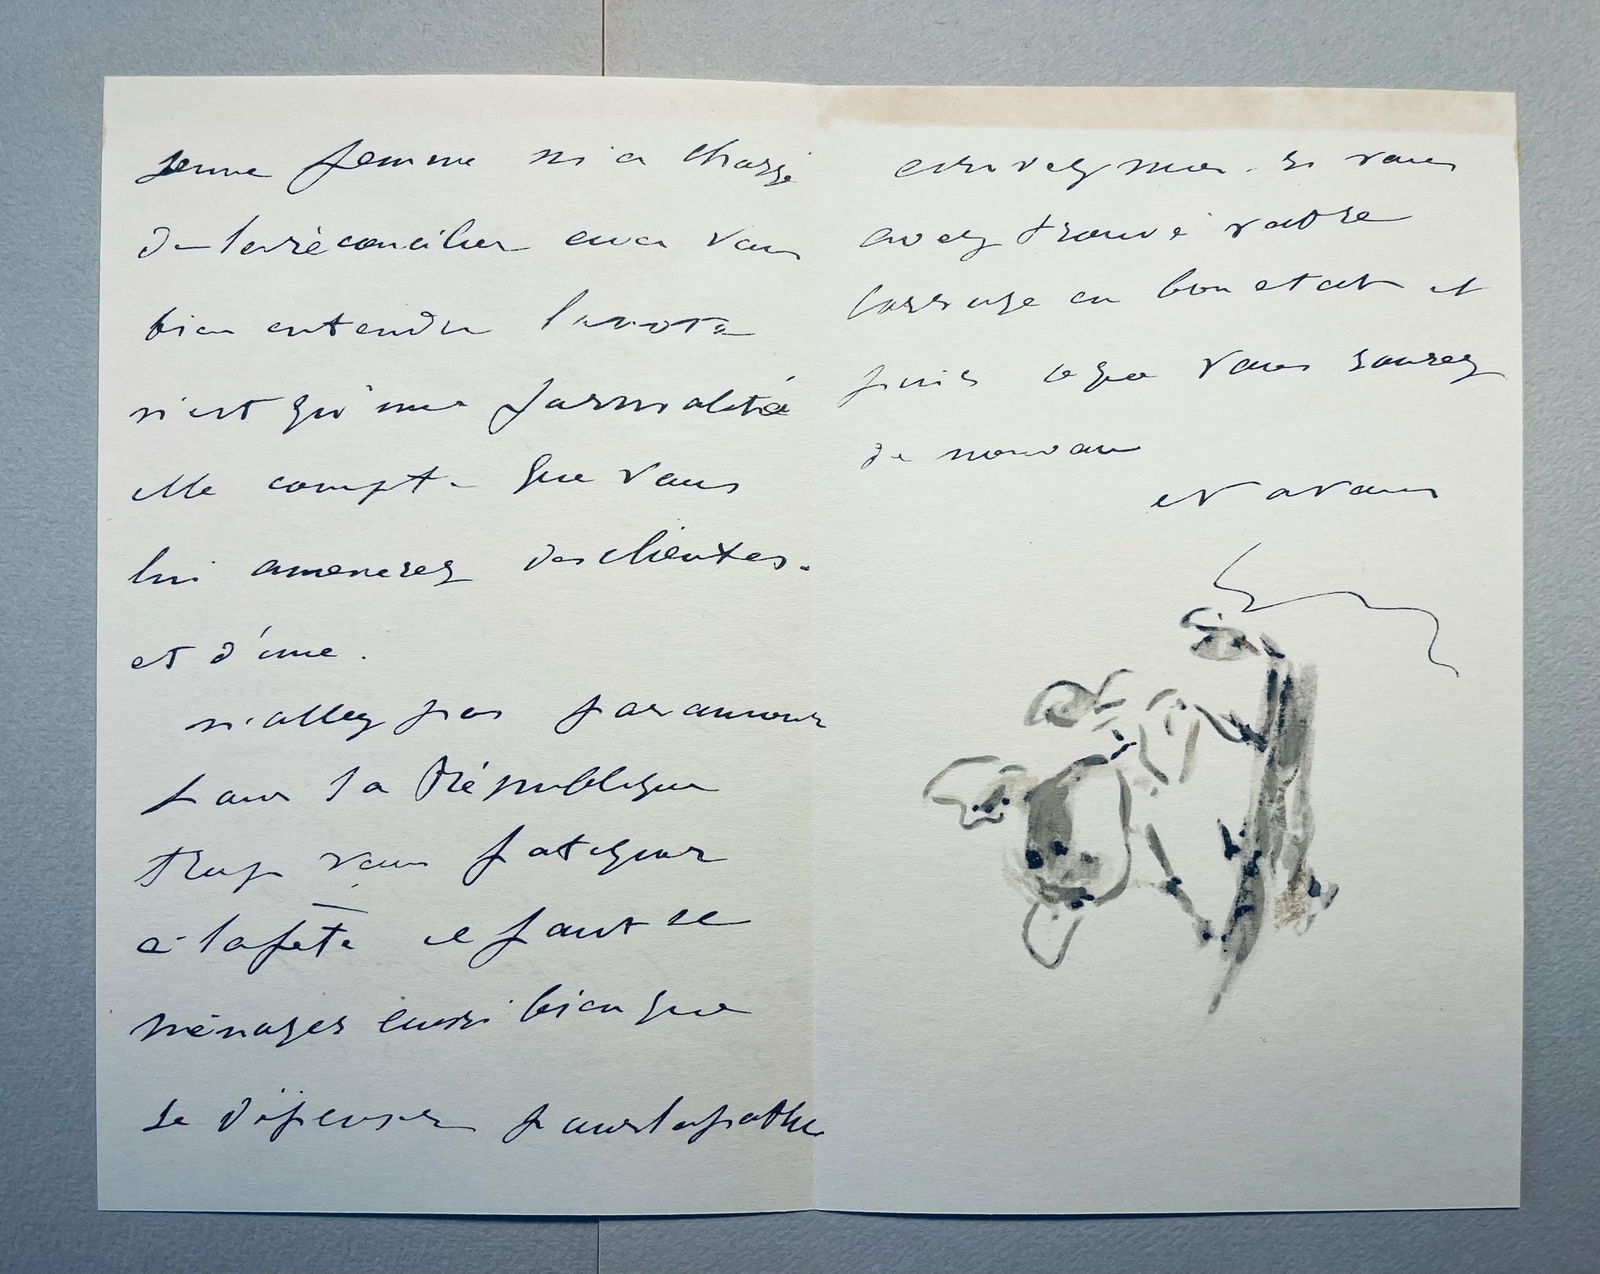 jeune femme m'a chargé
de la réconcilier avec vous
bien entendu
n'est qu'une formalité
elle compte que vous
lui amenerez des clientes.
et d'une.
n'allez pas par amour
pour la République
trop vous fatiguer
à la fête il faut se
ménager aussi bien que
se dépenser pour la patrie
écrivez moi. si vous
avez trouvé votre
en bon etat et
puis ce que vous saurez
de nouveau
et a vous